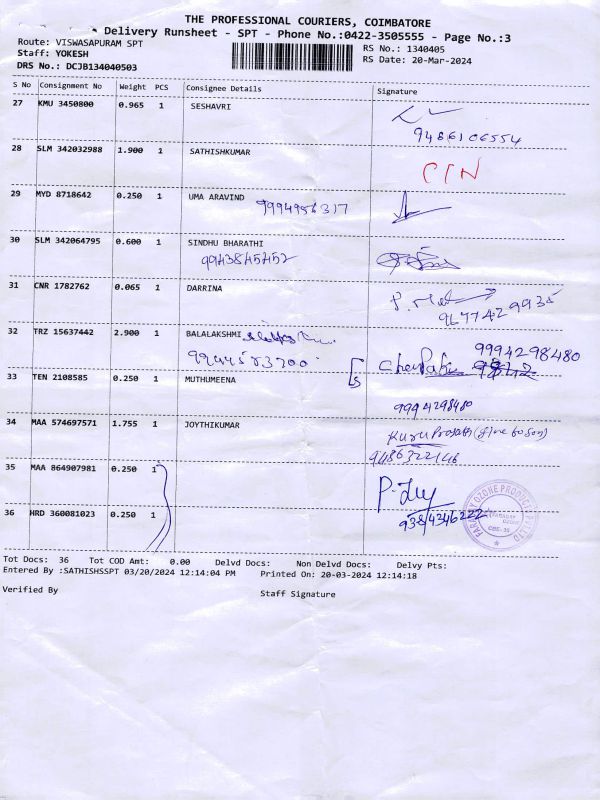 THE PROFESSIONAL COURIERS, COIMBATORE
Delivery Runsheet - SPT - Phone No.:0422-3505555 - Page No.:3
Route: VISWASAPURAM SPT RS No.: 1340405
Staff: YOKESH RS Date: 20-Mar-2024
DRS No.: DCJB134040503
S No Consignment No Weight PCS Consignee Details Signature
27 KMU 3450800 0.965 1 SESHAVRI
9486106554
28 SLM 342032988 1.900 1 SATHISHKUMAR
29 MYD 8718642 0.250 1 UMA ARAVIND 9994956317
30 SLM 342064795 0.600 1 SINDHU BHARATHI
9943845452
31 CNR 1782762 0.065 1 DARRINA
9677429935
32 TRZ 15637442 2.900 1 BALALAKSHMI
9994298480
33 TEN 2108585 0.250 1 MUTHUMEENA
9994298480
34 MAA 574697571 1.755 1 JOYTHIKUMAR
35 MAA 864907981 0.250 1
36 HRD 360081023 0.250 1
Tot Docs: 36 Tot COD Amt: 0.00 Delvd Docs: Non Delvd Docs: Delvy Pts:
Entered By :SATHISHSSPT 03/20/2024 12:14:04 PM Printed On: 20-03-2024 12:14:18
Verified By Staff Signature